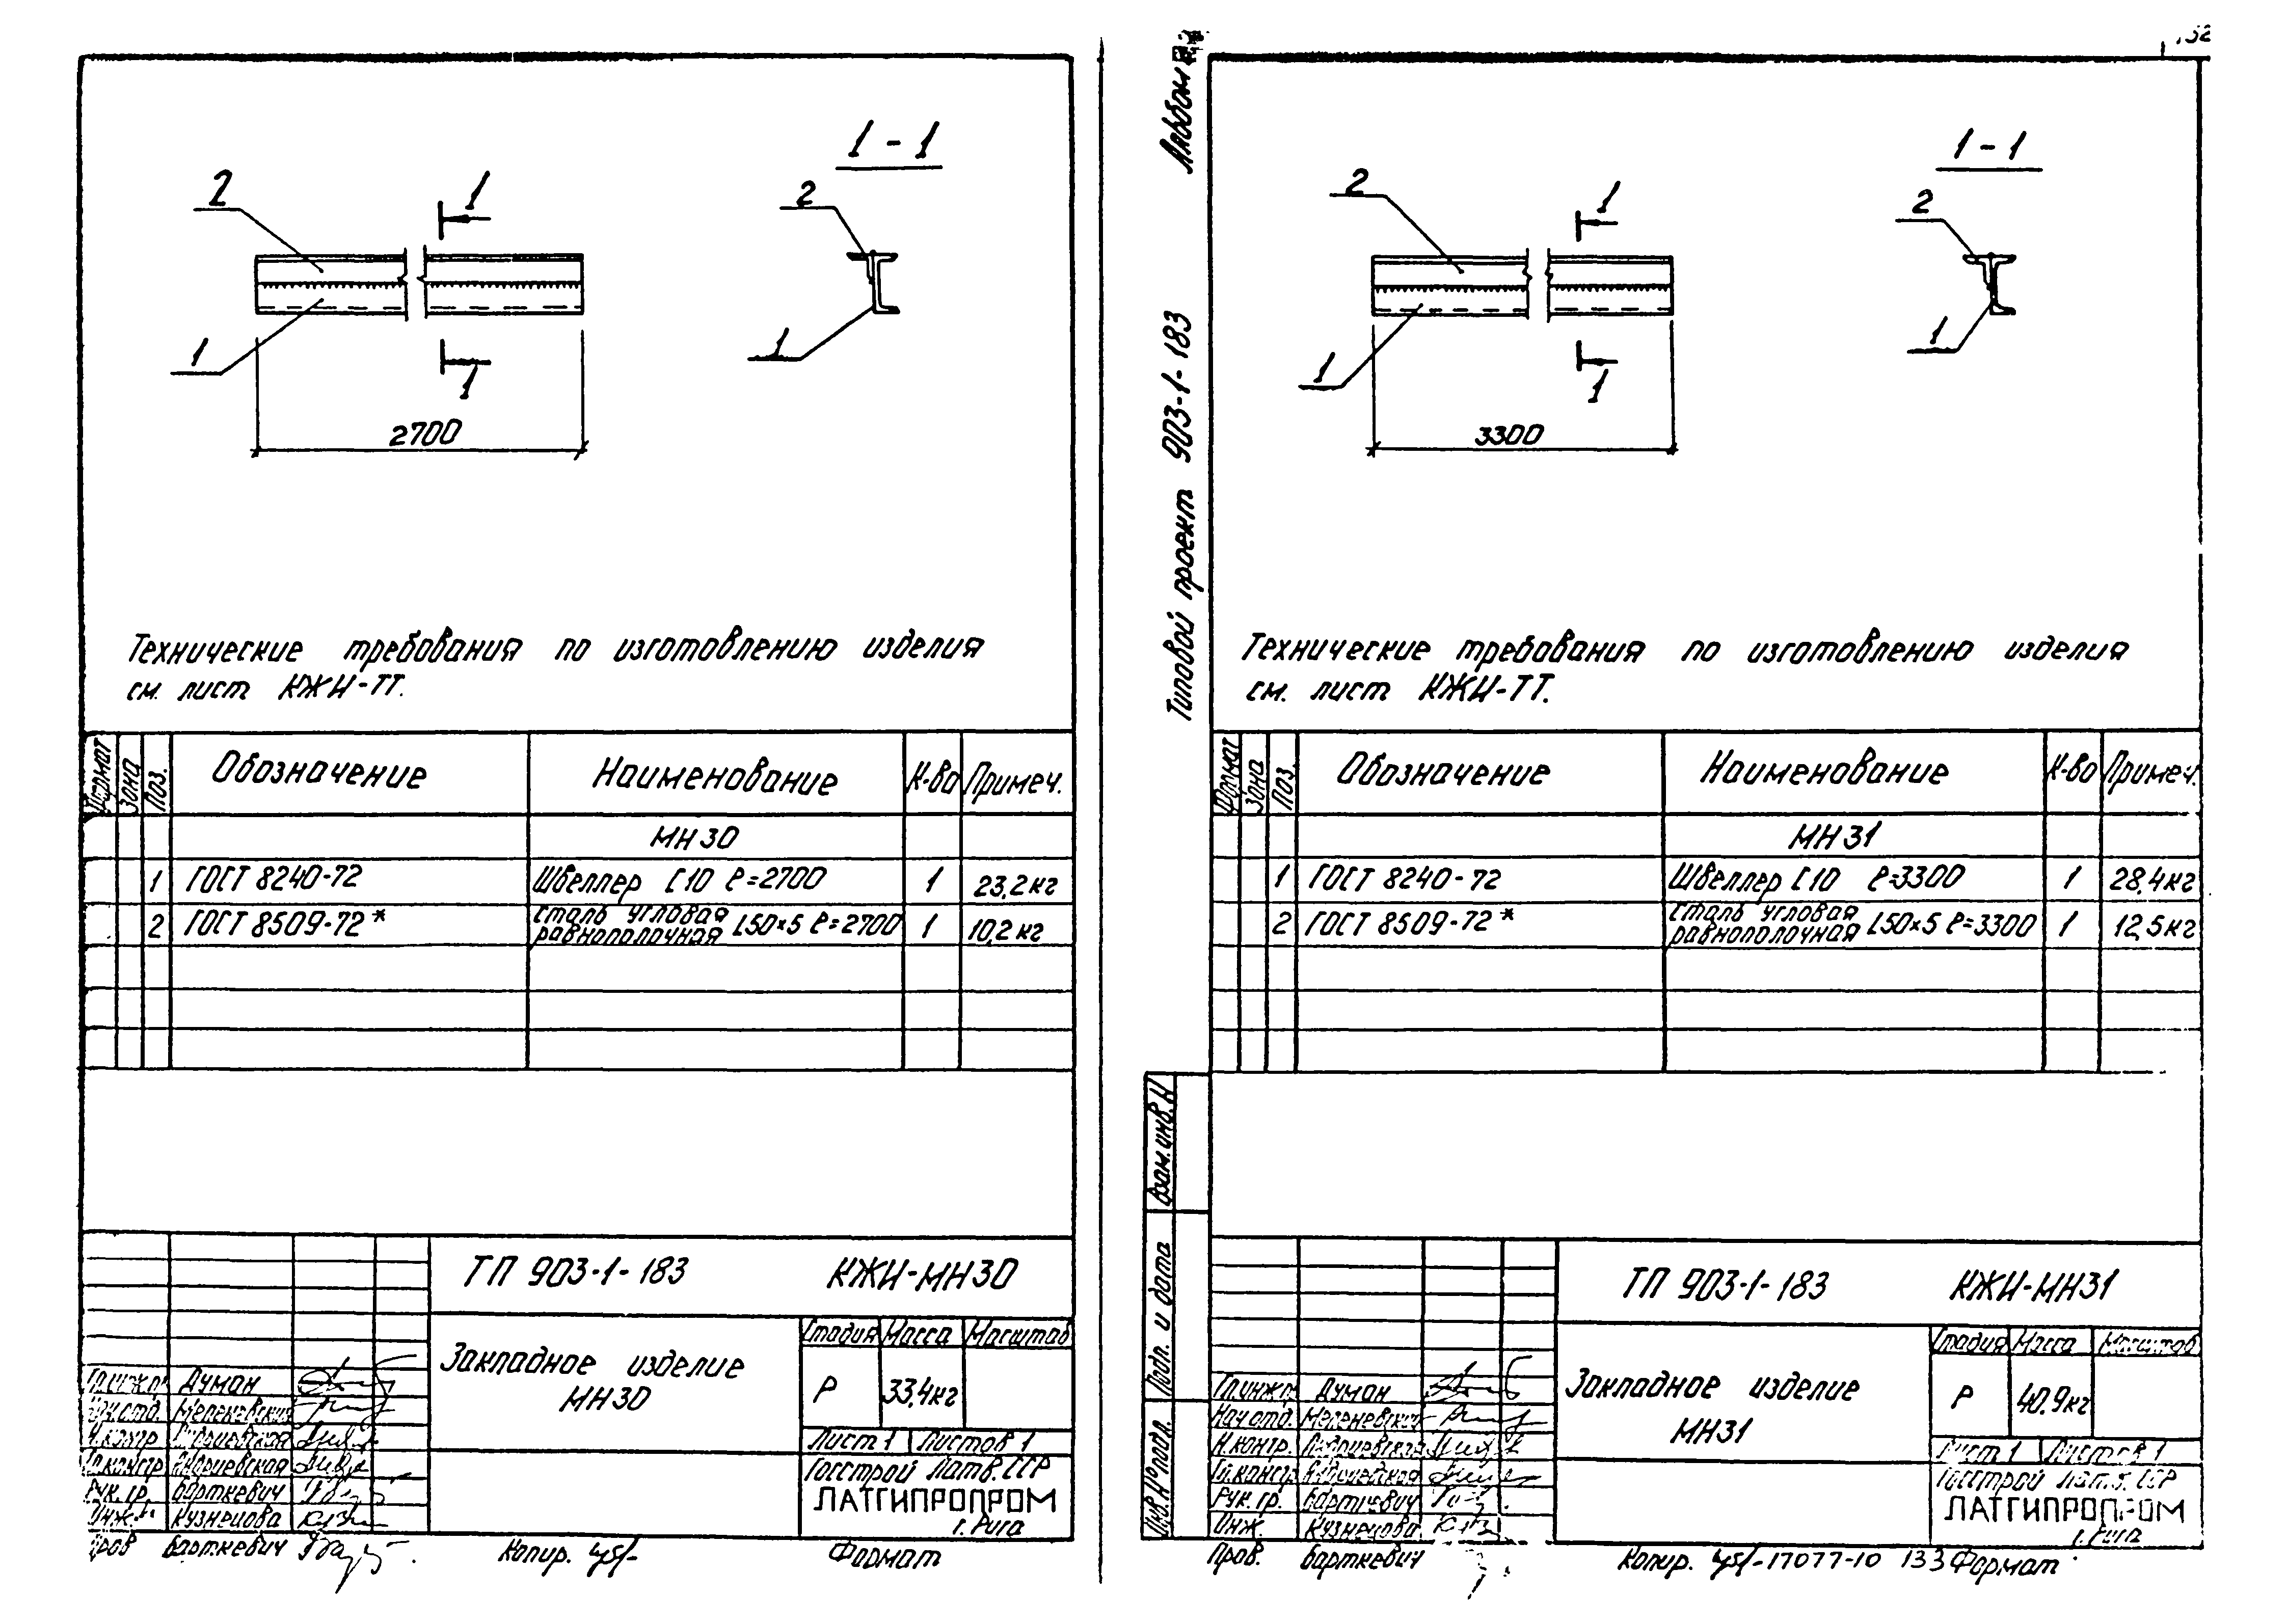 1-1
2
1
2
1
1
1
2700
Технические требования по изготовлению изделия
см. лист КЖИ-ТТ.
Формат Зона Поз. Обозначение Наименование К-во Примеч.
МН30
1 ГОСТ 8240-72 Швеллер [10 ℓ=2700 1 23,2кг
2 ГОСТ 8509-72* Сталь угловая равнополочная L50×5 ℓ=2700 1 10,2кг
ТП 903-1-183 КЖИ-МН30
Закладное изделие
МН30
Стадия Масса Масштаб
Р 33,4кг
Лист 1 Листов 1
Госстрой Латв. ССР
ЛАТГИПРОПРОМ
г. Рига
Гл.инж.пр Думан
Нач.отд. Меленевский
Н.контр.
Гл.констр.
Рук.гр. Барткевич
Инж. Кузнецова
Пров Барткевич
Копир. Формат
132
Альбом
Типовой проект 903-1-183
1-1
2
1
2
1
1
1
3300
Технические требования по изготовлению изделия
см. лист КЖИ-ТТ.
Формат Зона Поз. Обозначение Наименование К-во Примеч.
МН31
1 ГОСТ 8240-72 Швеллер [10 ℓ=3300 1 28,4кг
2 ГОСТ 8509-72* Сталь угловая равнополочная L50×5 ℓ=3300 1 12,5кг
Взам.инв.N
Подп. и дата
Инв.N°подл.
ТП 903-1-183 КЖИ-МН31
Закладное изделие
МН31
Стадия Масса Масштаб
Р 40,9кг
Лист 1 Листов 1
Госстрой Латв. ССР
ЛАТГИПРОПРОМ
г. Рига
Гл.инж.пр Думан
Нач.отд. Меленевский
Н.контр.
Гл.констр.
Рук.гр. Барткевич
Инж. Кузнецова
Пров. Барткевич
Копир. 17077-10 133 Формат